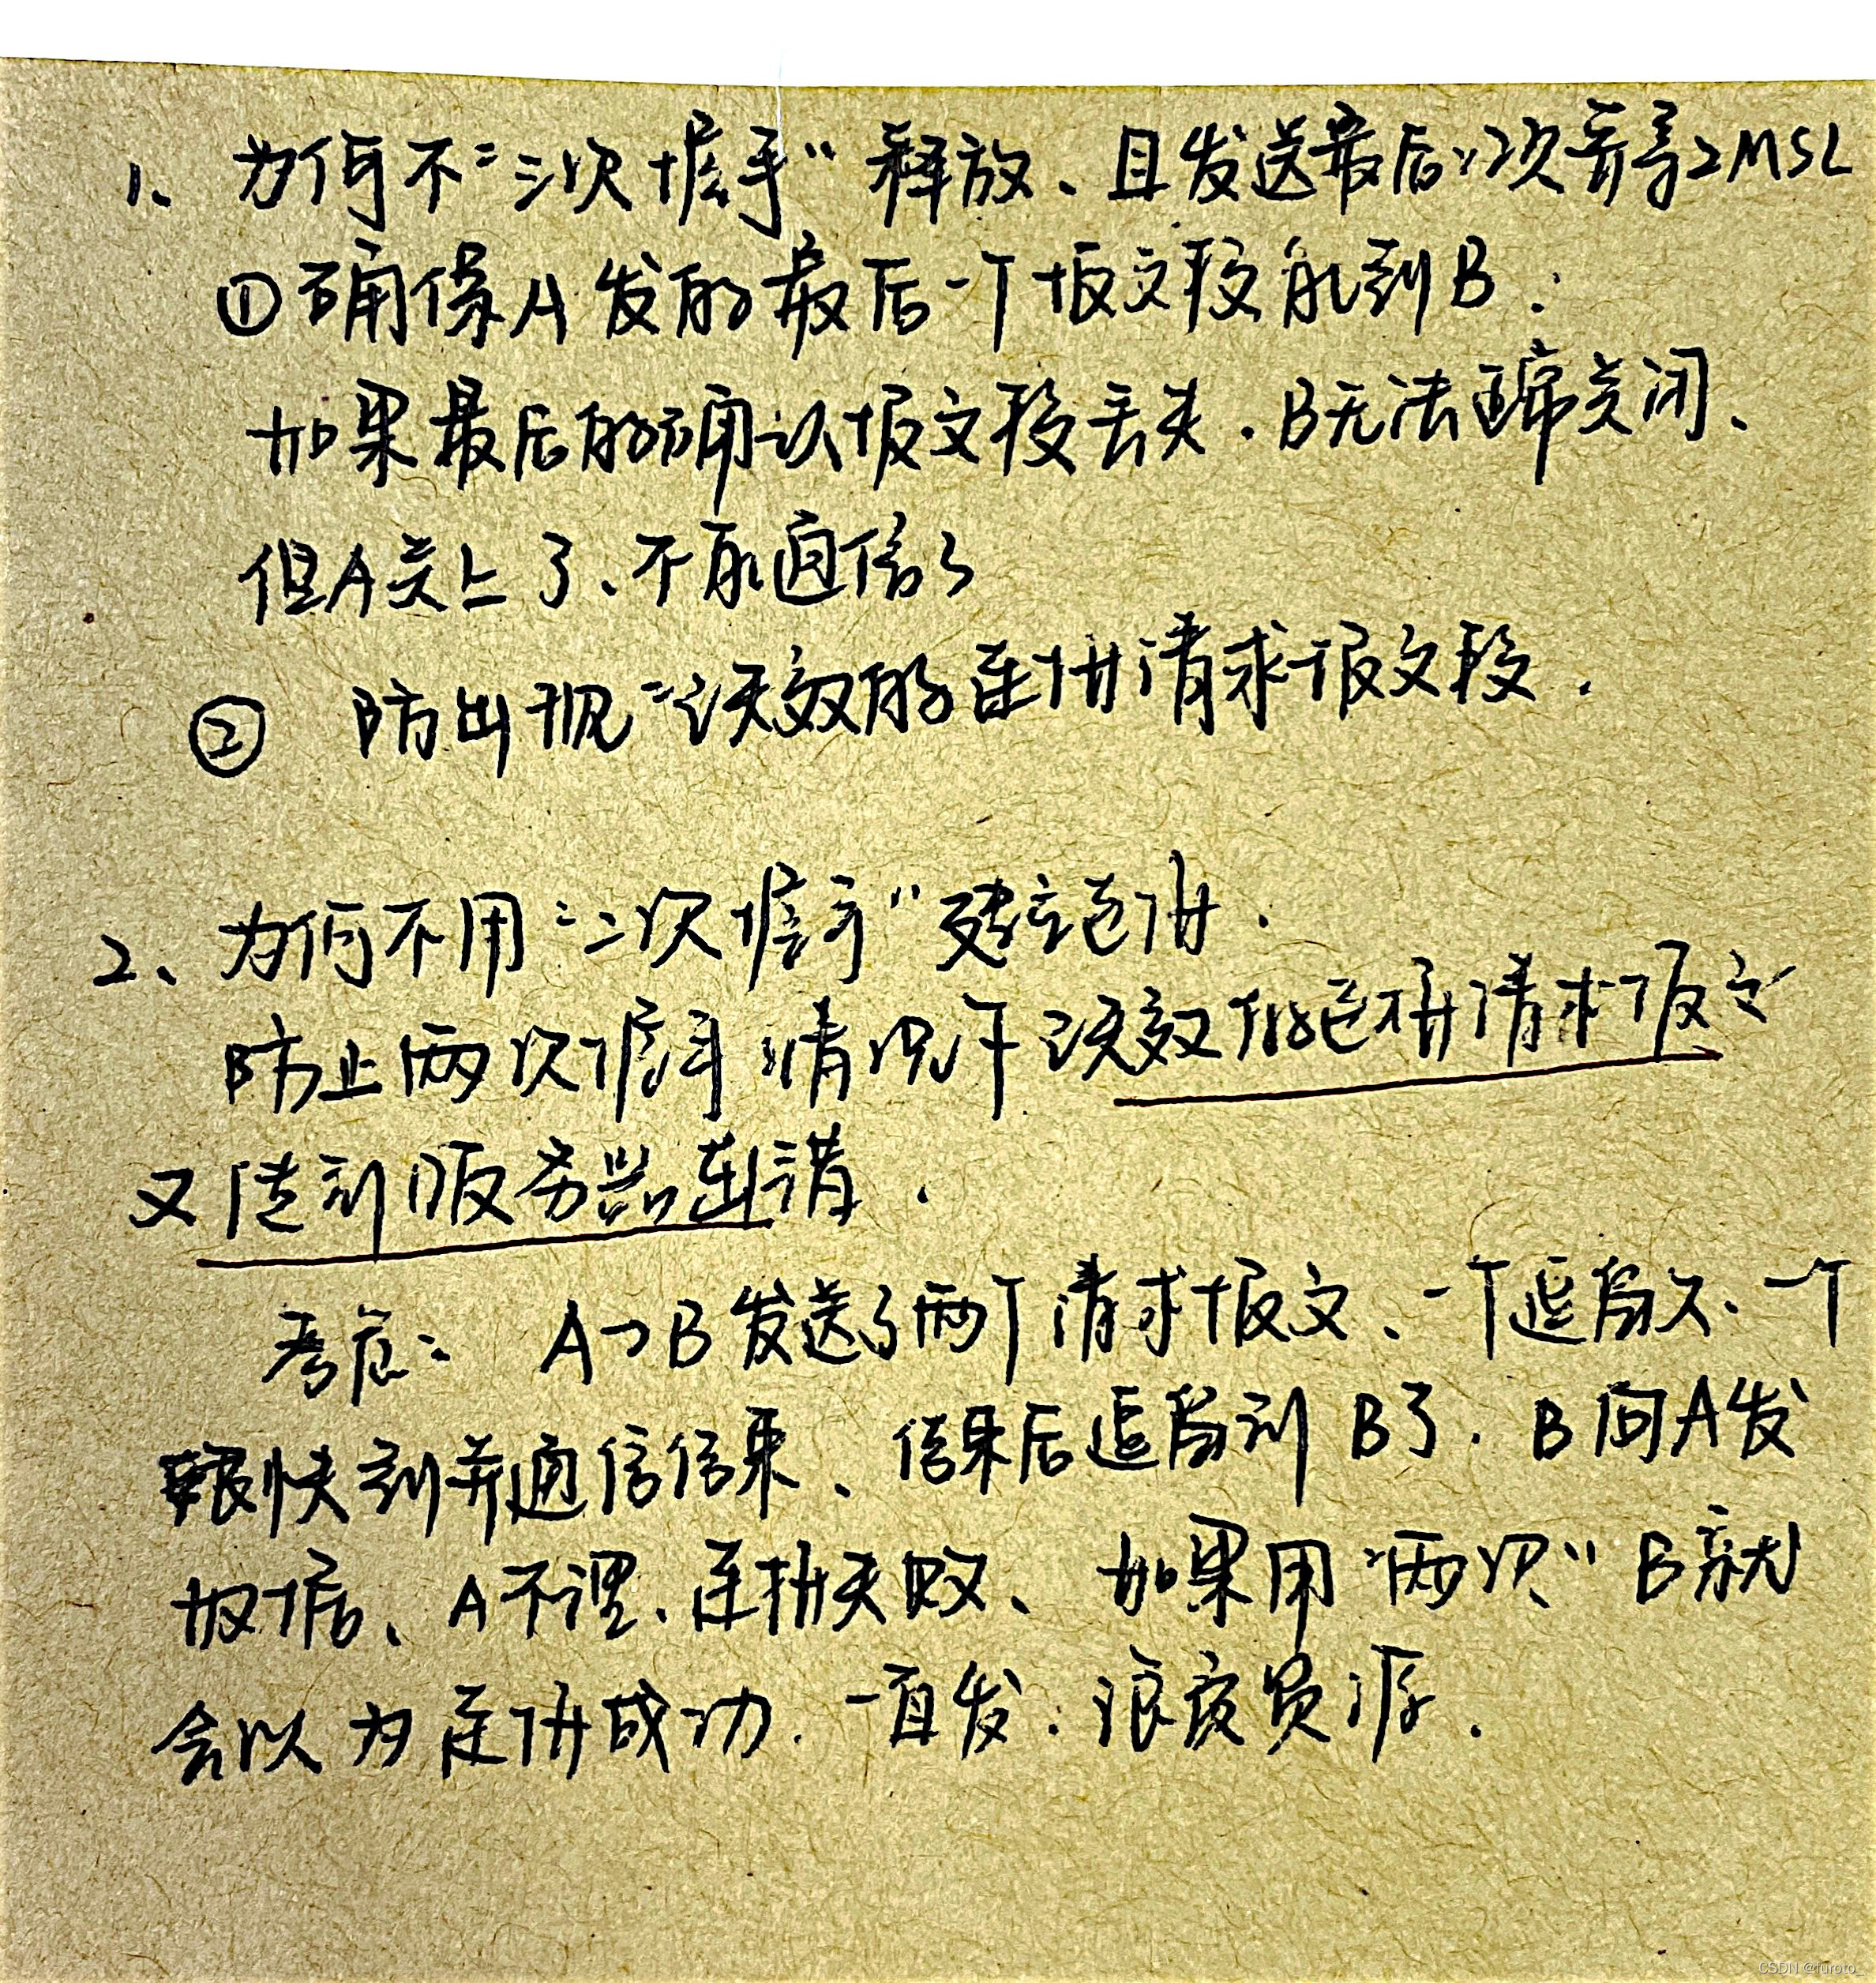 1、为何不“三次握手”释放、且发送最后一次需等2MSL
①确保A发的最后一个报文段能到B.
如果最后的确认报文段丢失.B无法正常关闭、
但A关上了、不能通信了
② 防出现“失效的连接请求报文段.
2、为何不用“二次握手”建立连接.
防止两次握手情况下 失效的连接请求报文
又传到服务器出错.
考虑: A→B发送了两个请求报文、一个滞留久、一个
很快到并通信结束、结束后滞留到B了.B向A发
数据、A不理、连接失败、如果用“两次”B就
会以为连接成功.一直发.浪费资源.
CSDN @furoto